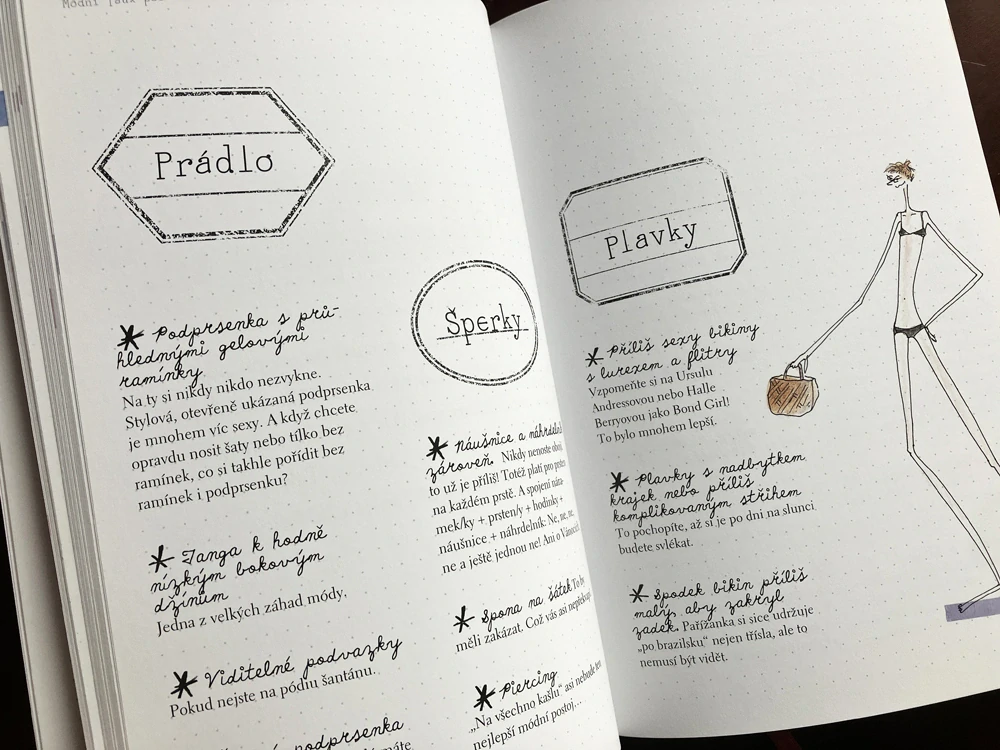 Módní faux
Prádlo
Podprsenka s prů-
hlednými gelovými
ramínky
Na ty si nikdy nikdo nezvykne.
Stylová, otevřeně ukázaná podprsenka
je mnohem víc sexy. A když chcete
opravdu nosit šaty nebo tílko bez
ramínek, co si takhle pořídit bez
ramínek i podprsenku?
Tanga k hodně
nízkým bokovým
džínům
Jedna z velkých záhad módy.
Viditelné podvazky
Pokud nejste na pódiu šantánu.
podprsenka
máte
Šperky
Náušnice a náhrdelní
zároveň. Nikdy nenoste obojí,
to už je příliš! Totéž platí pro prsten
na každém prstě. A spojení nára-
mek/ky + prsten/y + hodinky +
náušnice + náhrdelník: Ne, ne, ne,
ne a ještě jednou ne! Ani o Vánocích
Spona na šátek To by
měli zakázat. Což vás asi nepřekvapí.
Piercing
„Na všechno kašlu“ asi nebude ten
nejlepší módní postoj...
Plavky
Příliš sexy bikiny
s lurexem a flitry
Vzpomeňte si na Ursulu
Andressovou nebo Halle
Berryovou jako Bond Girl!
To bylo mnohem lepší.
Plavky s nadbytkem
krajek nebo příliš
komplikovaným střihem
To pochopíte, až si je po dni na slunci
budete svlékat.
Spodek bikin příliš
malý, aby zakryl
zadek. Pařížanka si sice udržuje
„po brazilsku“ nejen třísla, ale to
nemusí být vidět.